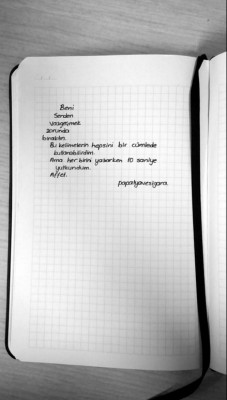 Beni
Senden
Vazgeçmek
zorunda
bıraktın.
Bu kelimelerin hepsini bir cümlede
kullanabilirdim.
Ama her birini yazarken 10 saniye
yutkundum.
Affet.
papatyavesigara